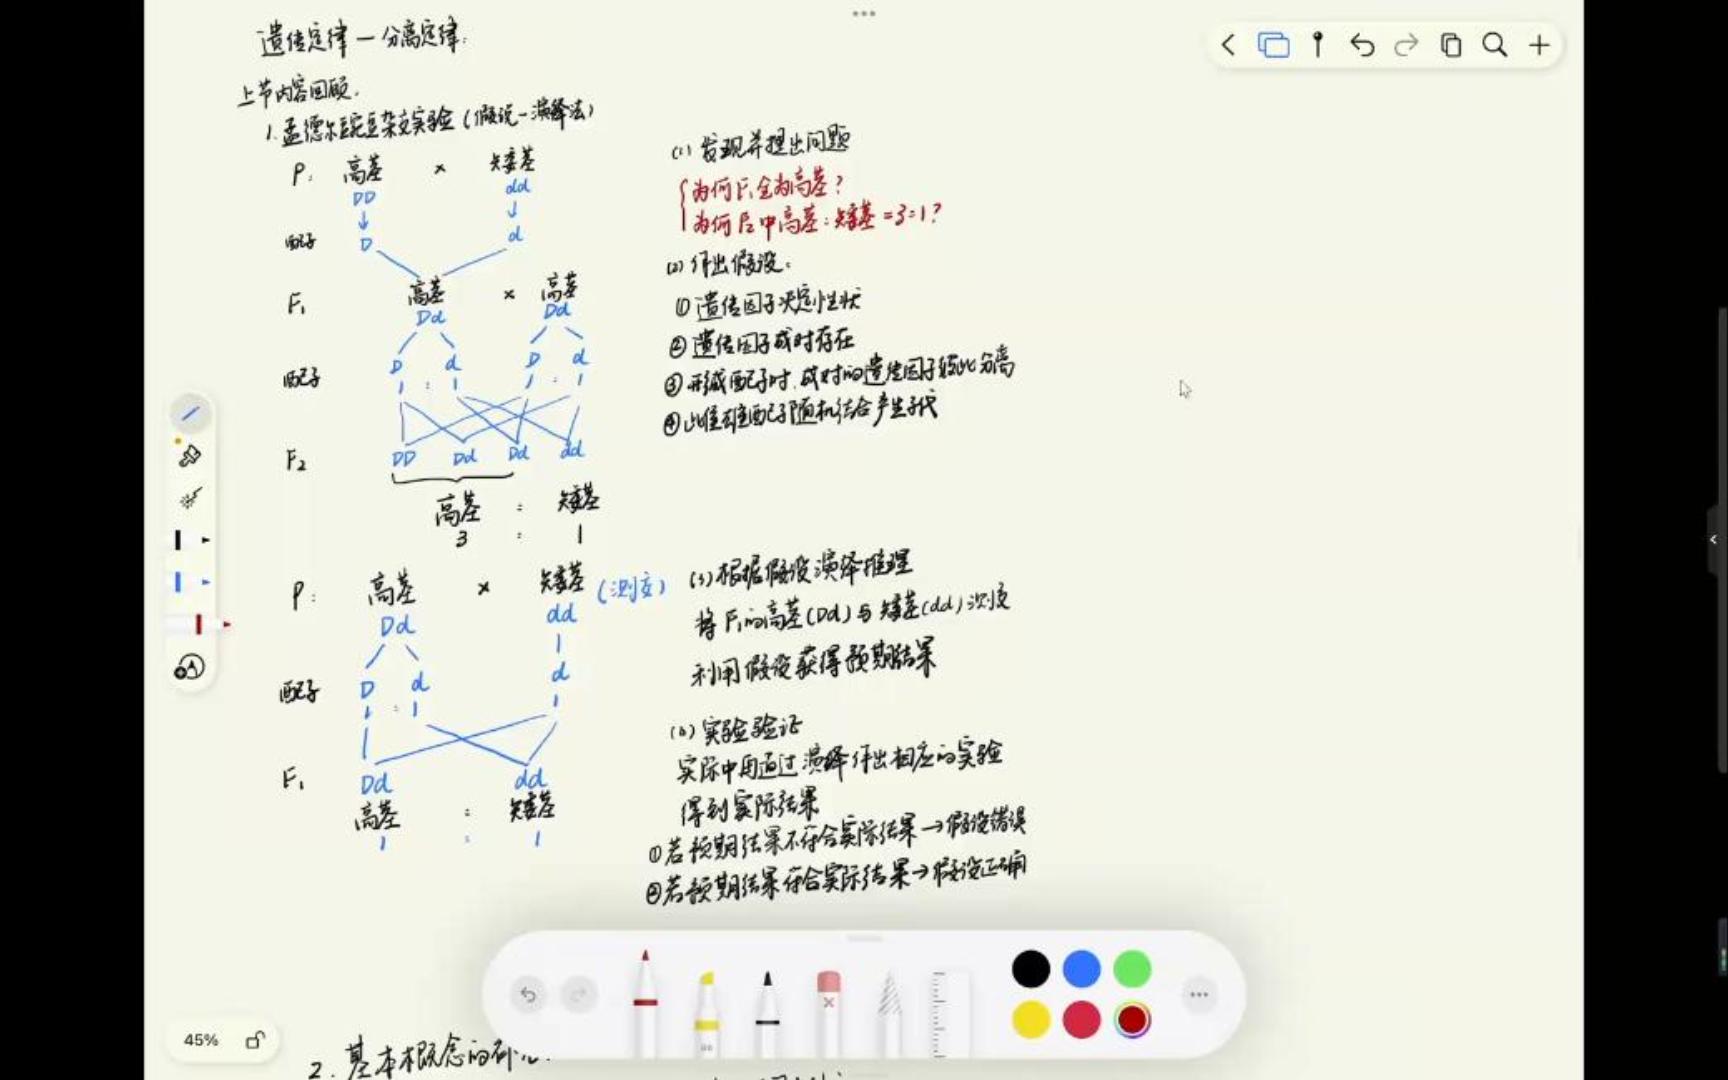 遗传定律—分离定律:
上节内容回顾.
1.孟德尔豌豆杂交实验(假说—演绎法)
P: 高茎 × 矮茎
DD dd
↓ ↓
配子 D d
F₁ 高茎 × 高茎
Dd Dd
配子 D d D d
1 : 1 1 : 1
F₂ DD Dd Dd dd
高茎 : 矮茎
3 : 1
(1)发现并提出问题
为何F₁全为高茎?
为何F₂中高茎:矮茎=3:1?
(2)作出假设.
①遗传因子决定性状
②遗传因子成对存在
③形成配子时,成对的遗传因子彼此分离
④雌雄配子随机结合产生子代
P: 高茎 × 矮茎 (测交)
Dd dd
配子 D d d
1 : 1 1
F₁ Dd dd
高茎 : 矮茎
1 : 1
(3)根据假设演绎推理
将F₁的高茎(Dd)与矮茎(dd)测交
利用假设获得预期结果
(4)实验验证
实际中再通过演绎作出相应的实验
得到实际结果
①若预期结果不符合实际结果→假设错误
②若预期结果符合实际结果→假设正确
2.基本概念的
45%